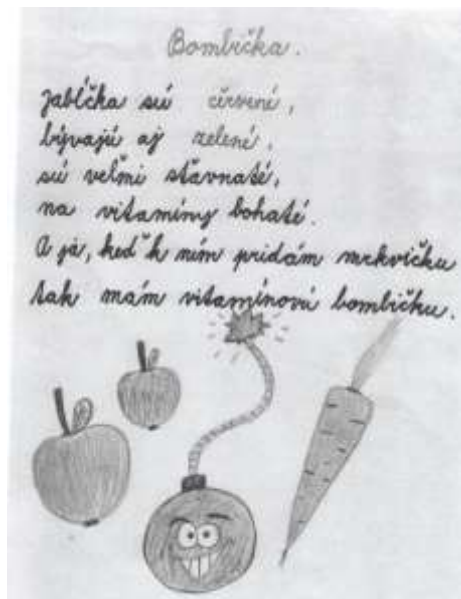 Bombička.
Jabĺčka sú červené,
bývajú aj zelené,
sú veľmi šťavnaté,
na vitamíny bohaté.
A ja, keď k ním pridám mrkvičku
tak mám vitamínovú bombičku.